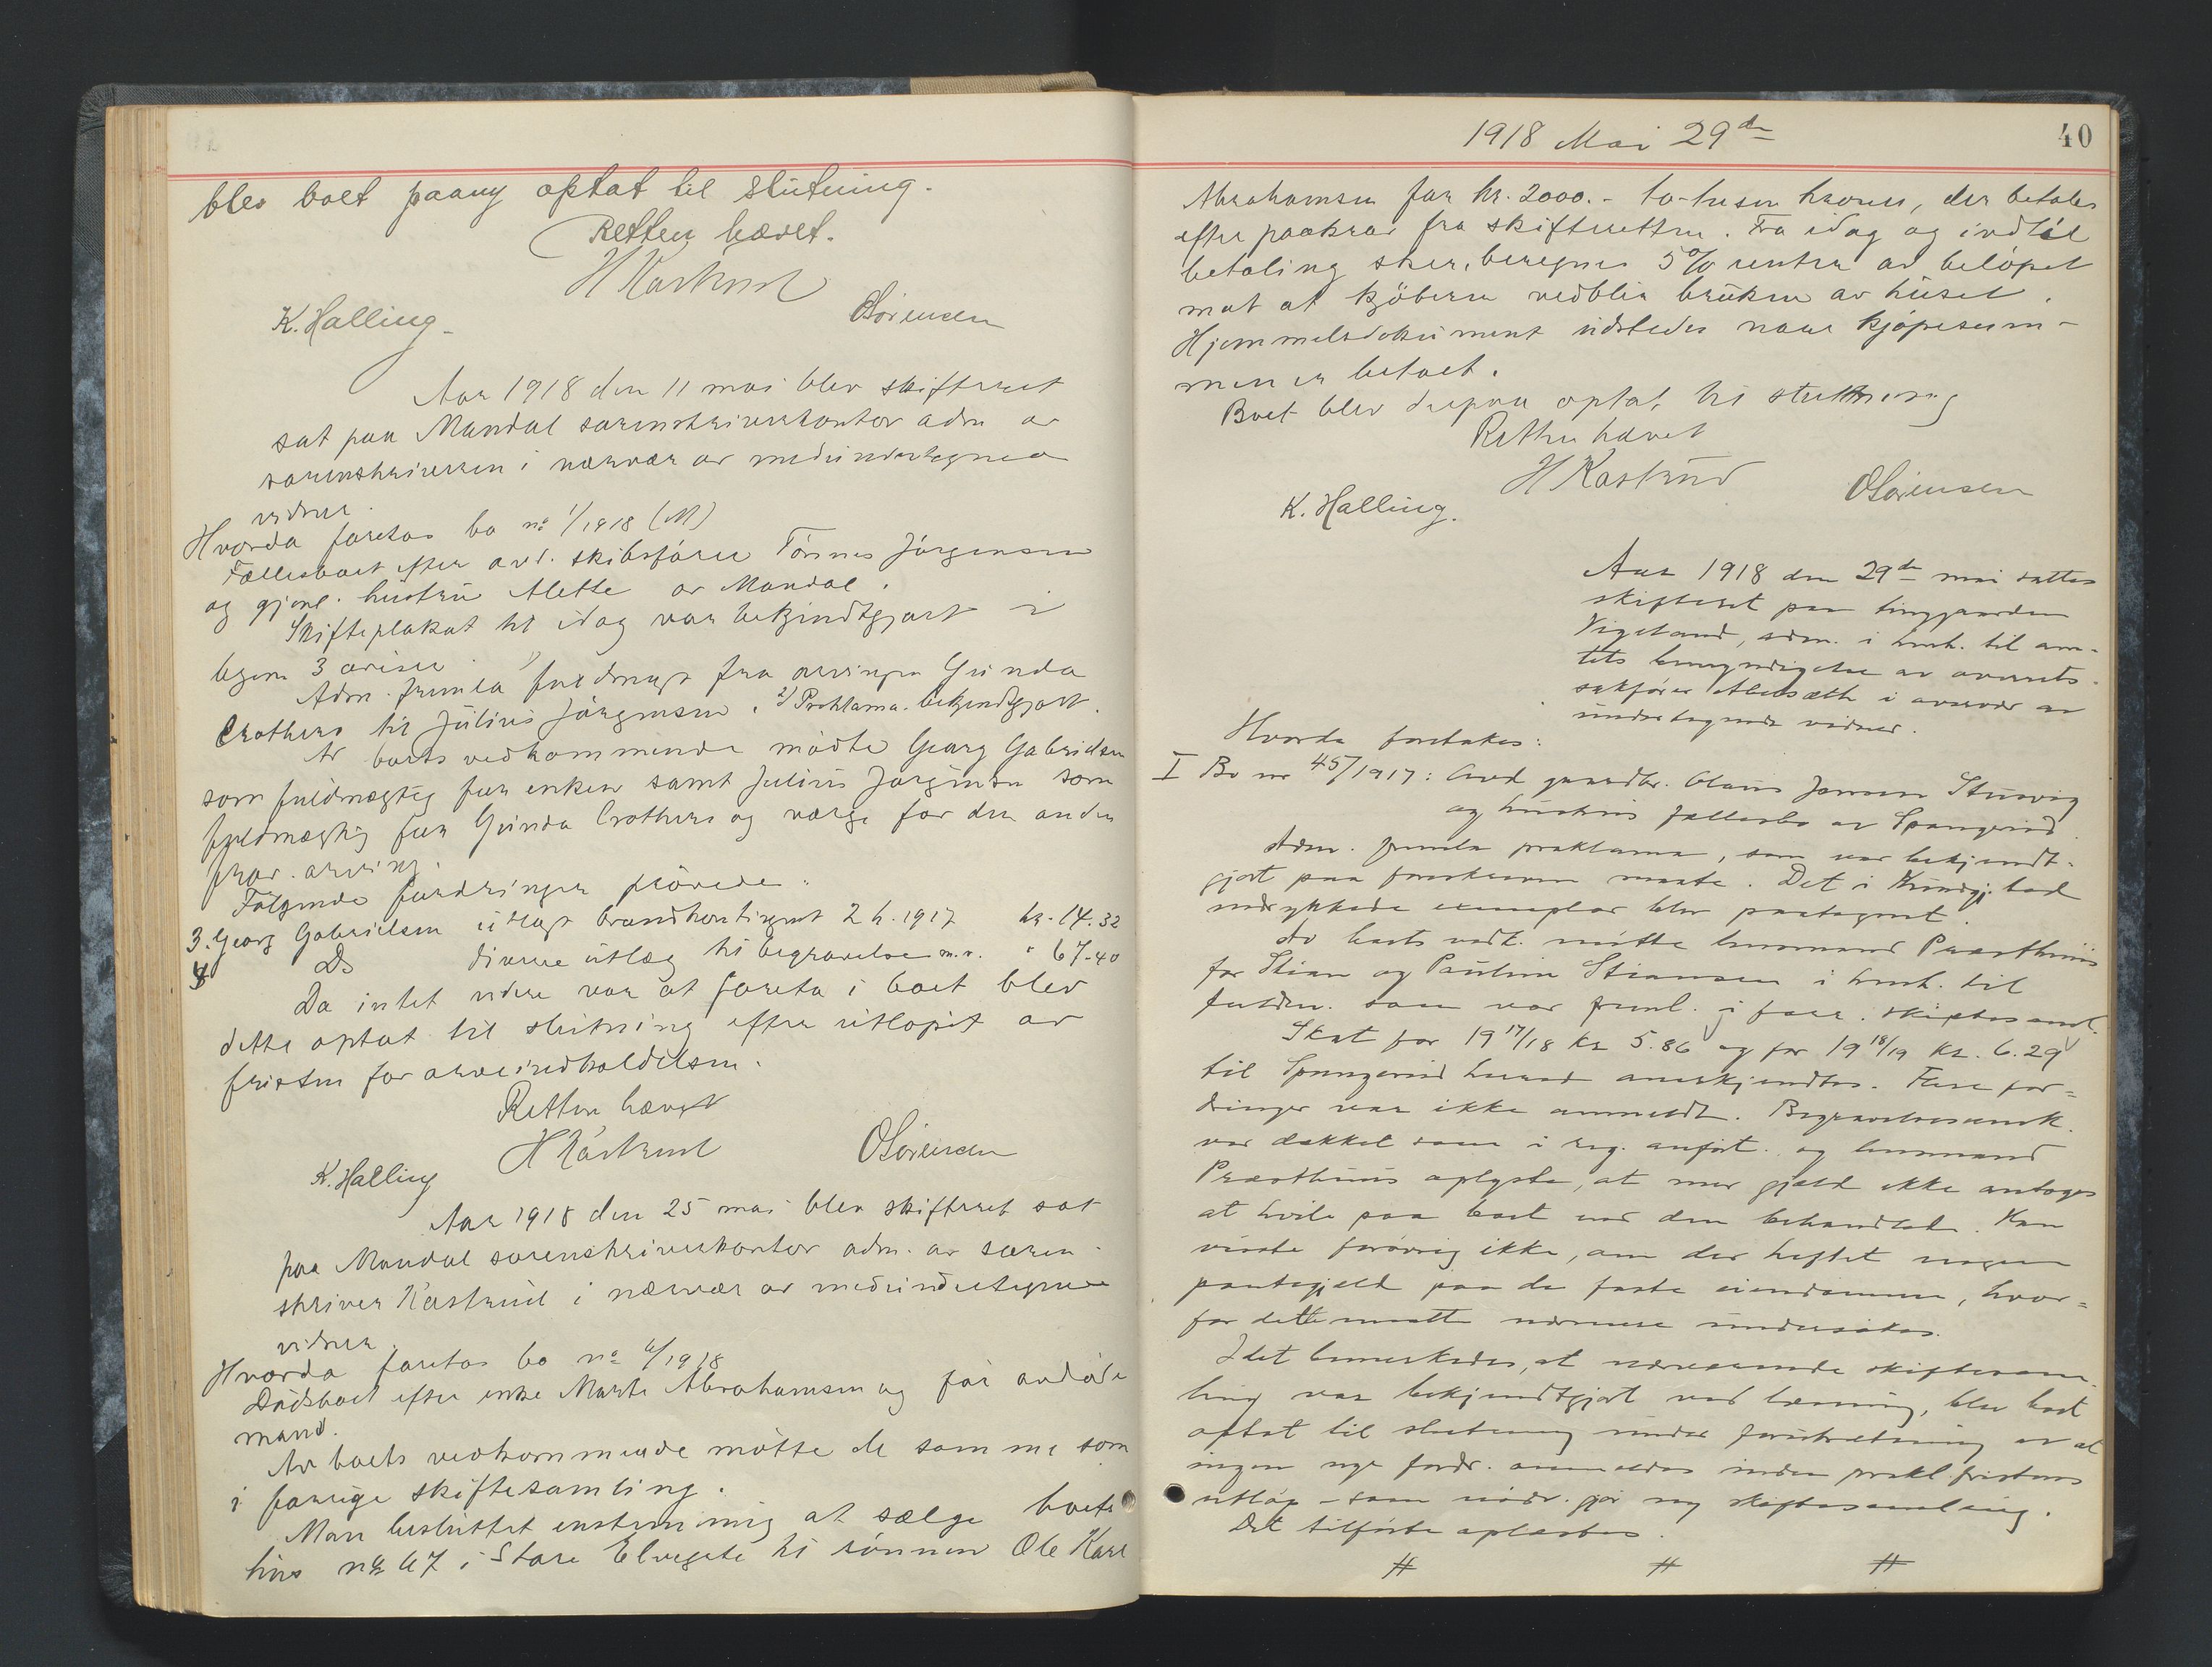 blev boet paany optat til slutning.
Retten hævet.
H Kastrud
K. Halling
OSörensen
Aar 1918 den 11 mai blev skifteret
sat paa Mandal sorenskriverkontor adm av
sorenskriveren i nærvær av medundertegnede
vidner.
Hvorda foretas bo no 1/1918 (M)
Fællesboet efter avd. skibsfører Tönnes Jörgensen
og gjenl. hustru Alette av Mandal.
Skifteplakat til idag var bekjendtgjort i
byens 3 aviser.
Adm. fremla 1) fuldmagt fra arvingen Gunda
Crothers til Julius Jörgensen. 2) Proklama bekjendtgjort.
Av boets vedkommende mödte Georg Gabrielsen
som fuldmægtig for enken samt Julius Jörgensen som
fuldmægtig for Gunda Crothers og værge for den anden
frav. arving.
Fölgende fordringer prövedes:
3. Georg Gabrielsen utlagt brandkontingent 2 h. 1917 kr. 14.32
4 Do diverse utlæg til begravelse m.v. " 67.40
Da intet videre var at foreta i boet blev
dette optat til slutning efter utlöpet av
fristen for arveindkaldelsen.
Retten hævet
H Kastrud
K. Halling
OSörensen
Aar 1918 den 25 mai blev skifteret sat
paa Mandal sorenskriverkontor adm. av soren-
skriver Kastrud i nærvær av medundertegnede
vidner.
Hvorda foretas bo no 6/1918
Dödsboet efter enke Marte Abrahamsen og för avdöde
mand.
Av boets vedkommende mötte de samme som
i forrige skiftesamling.
Man besluttet enstemmig at sælge boets
hus no 67 i Store Elvegate til sönnen Ole Karl
1918 Mai 29de
40
Abrahamsen for kr. 2000.- to-tusen kroner, der betales
efter paakrav fra skifteretten. Fra idag og indtil
betaling sker, beregnes 5% renter av belöpet
mot at kjöberen vedblir bruken av huset.
Hjemmelsdokument utstedes naar kjöpesum-
men er betalt.
Boet blev derpaa optat til slutning
Retten hævet
H Kastrud
K. Halling.
OSörensen
Aar 1918 den 29de mai sattes
skifteret paa tinggaarden
Vigeland, adm. i henh. til am-
tets bemyndigelse av overrets-
sakförer i overvær av
undertegnede vidner.
Hvorda foretakes:
I Bo nr 45/1917: Avd gaardbr. Olaus Jensen Stusvig
og hustrus fællesbo av Spangereid
Adm. fremla proklama, som var bekjendt-
gjort paa foreskreven maate. Det i Kundgj. blad
indrykkede exemplar blev paategnet.
Av boets vedk. mötte lensmand Præsthuus
for Stian og Pauline Stiansen i henh. til
fuldm. som var freml. i forr. skiftesaml.
Skat for 1917/18 kr 5.86 og for 1918/19 kr. 6.29
til Spangereid herred anerkjendtes. Flere for-
dringer var ikke anmeldt. Begravelsesomk.
var dækket som i reg. anfört. og lensmand
Præsthuus oplyste, at mer gjæld ikke antoges
at hvile paa boet end den behandlede. Han
visste forövrig ikke, om der heftet nogen
pantegjæld paa de faste eiendomme, hvor-
for dette maatte nærmere undersökes.
Idet bemerkedes, at nærværende skiftesam-
ling var bekjendtgjort ved læsning, blev boet
optat til slutning under forutsetning av at
ingen nye fordr. anmeldes inden prokl. fristens
utlöp - som nödv. gjör ny skiftesamling.
Det tilförte oplæstes.
# # #